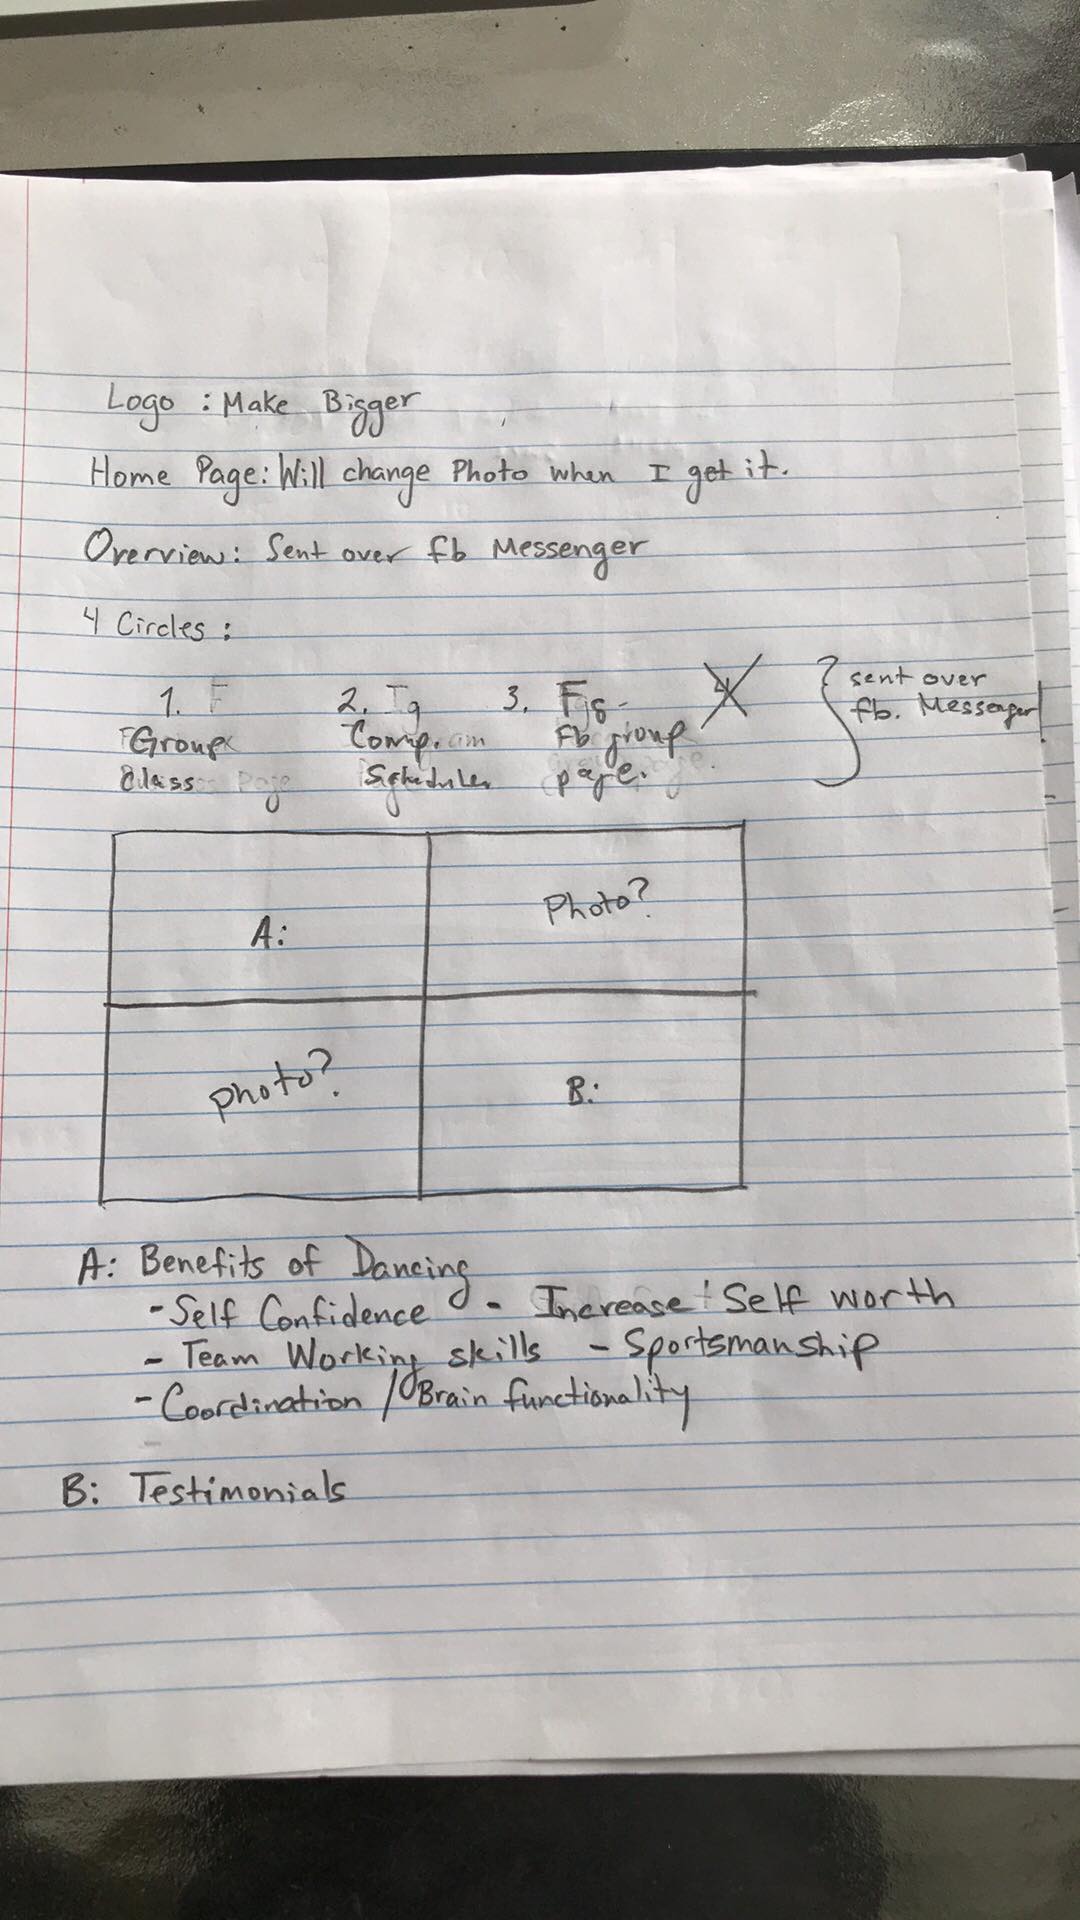 Logo : Make Bigger
Home Page: Will change Photo when I get it.
Overview: Sent over fb Messenger
4 Circles :
1. 2. 3. 4
Group Comp. Fb group
Class Schedules page.
sent over
fb. Messenger
A: Photo?
photo? B:
A: Benefits of Dancing
- Self Confidence - Increase Self worth
- Team Working skills - Sportsmanship
- Coordination / Brain functionality
B: Testimonials